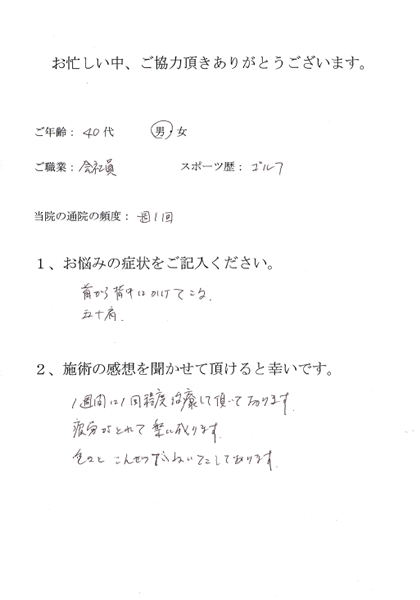 お忙しい中、ご協力頂きありがとうございます。
ご年齢：40代　男・女
ご職業：会社員　スポーツ歴：ゴルフ
当院の通院の頻度：週1回
１、お悩みの症状をご記入ください。
首から背中にかけてこる
五十肩.
２、施術の感想を聞かせて頂けると幸いです。
1週間に1回程度治療して頂いております.
疲労がとれて楽に成ります.
色々と
しております.